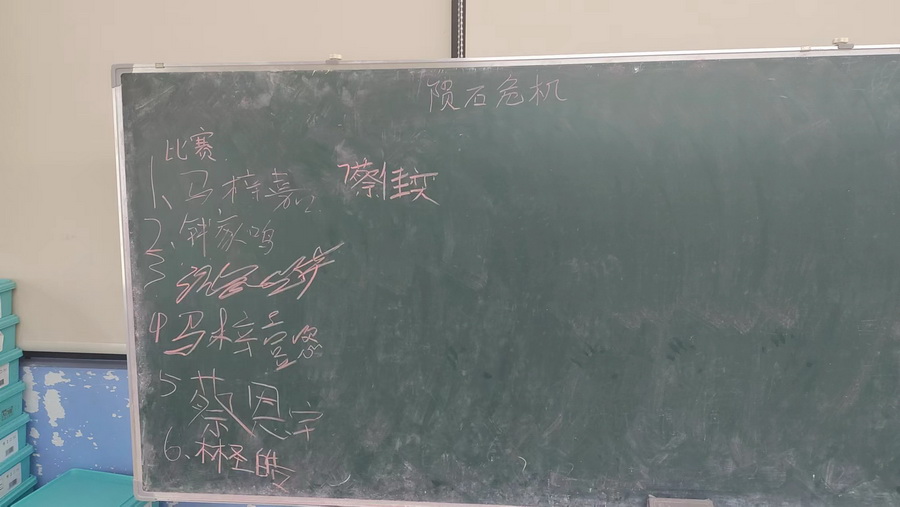 陨石危机
比赛
1、马梓嘉
7蔡佳奕
2、钟家鸣
3
4马梓
5蔡恩宇
6、林圣皓